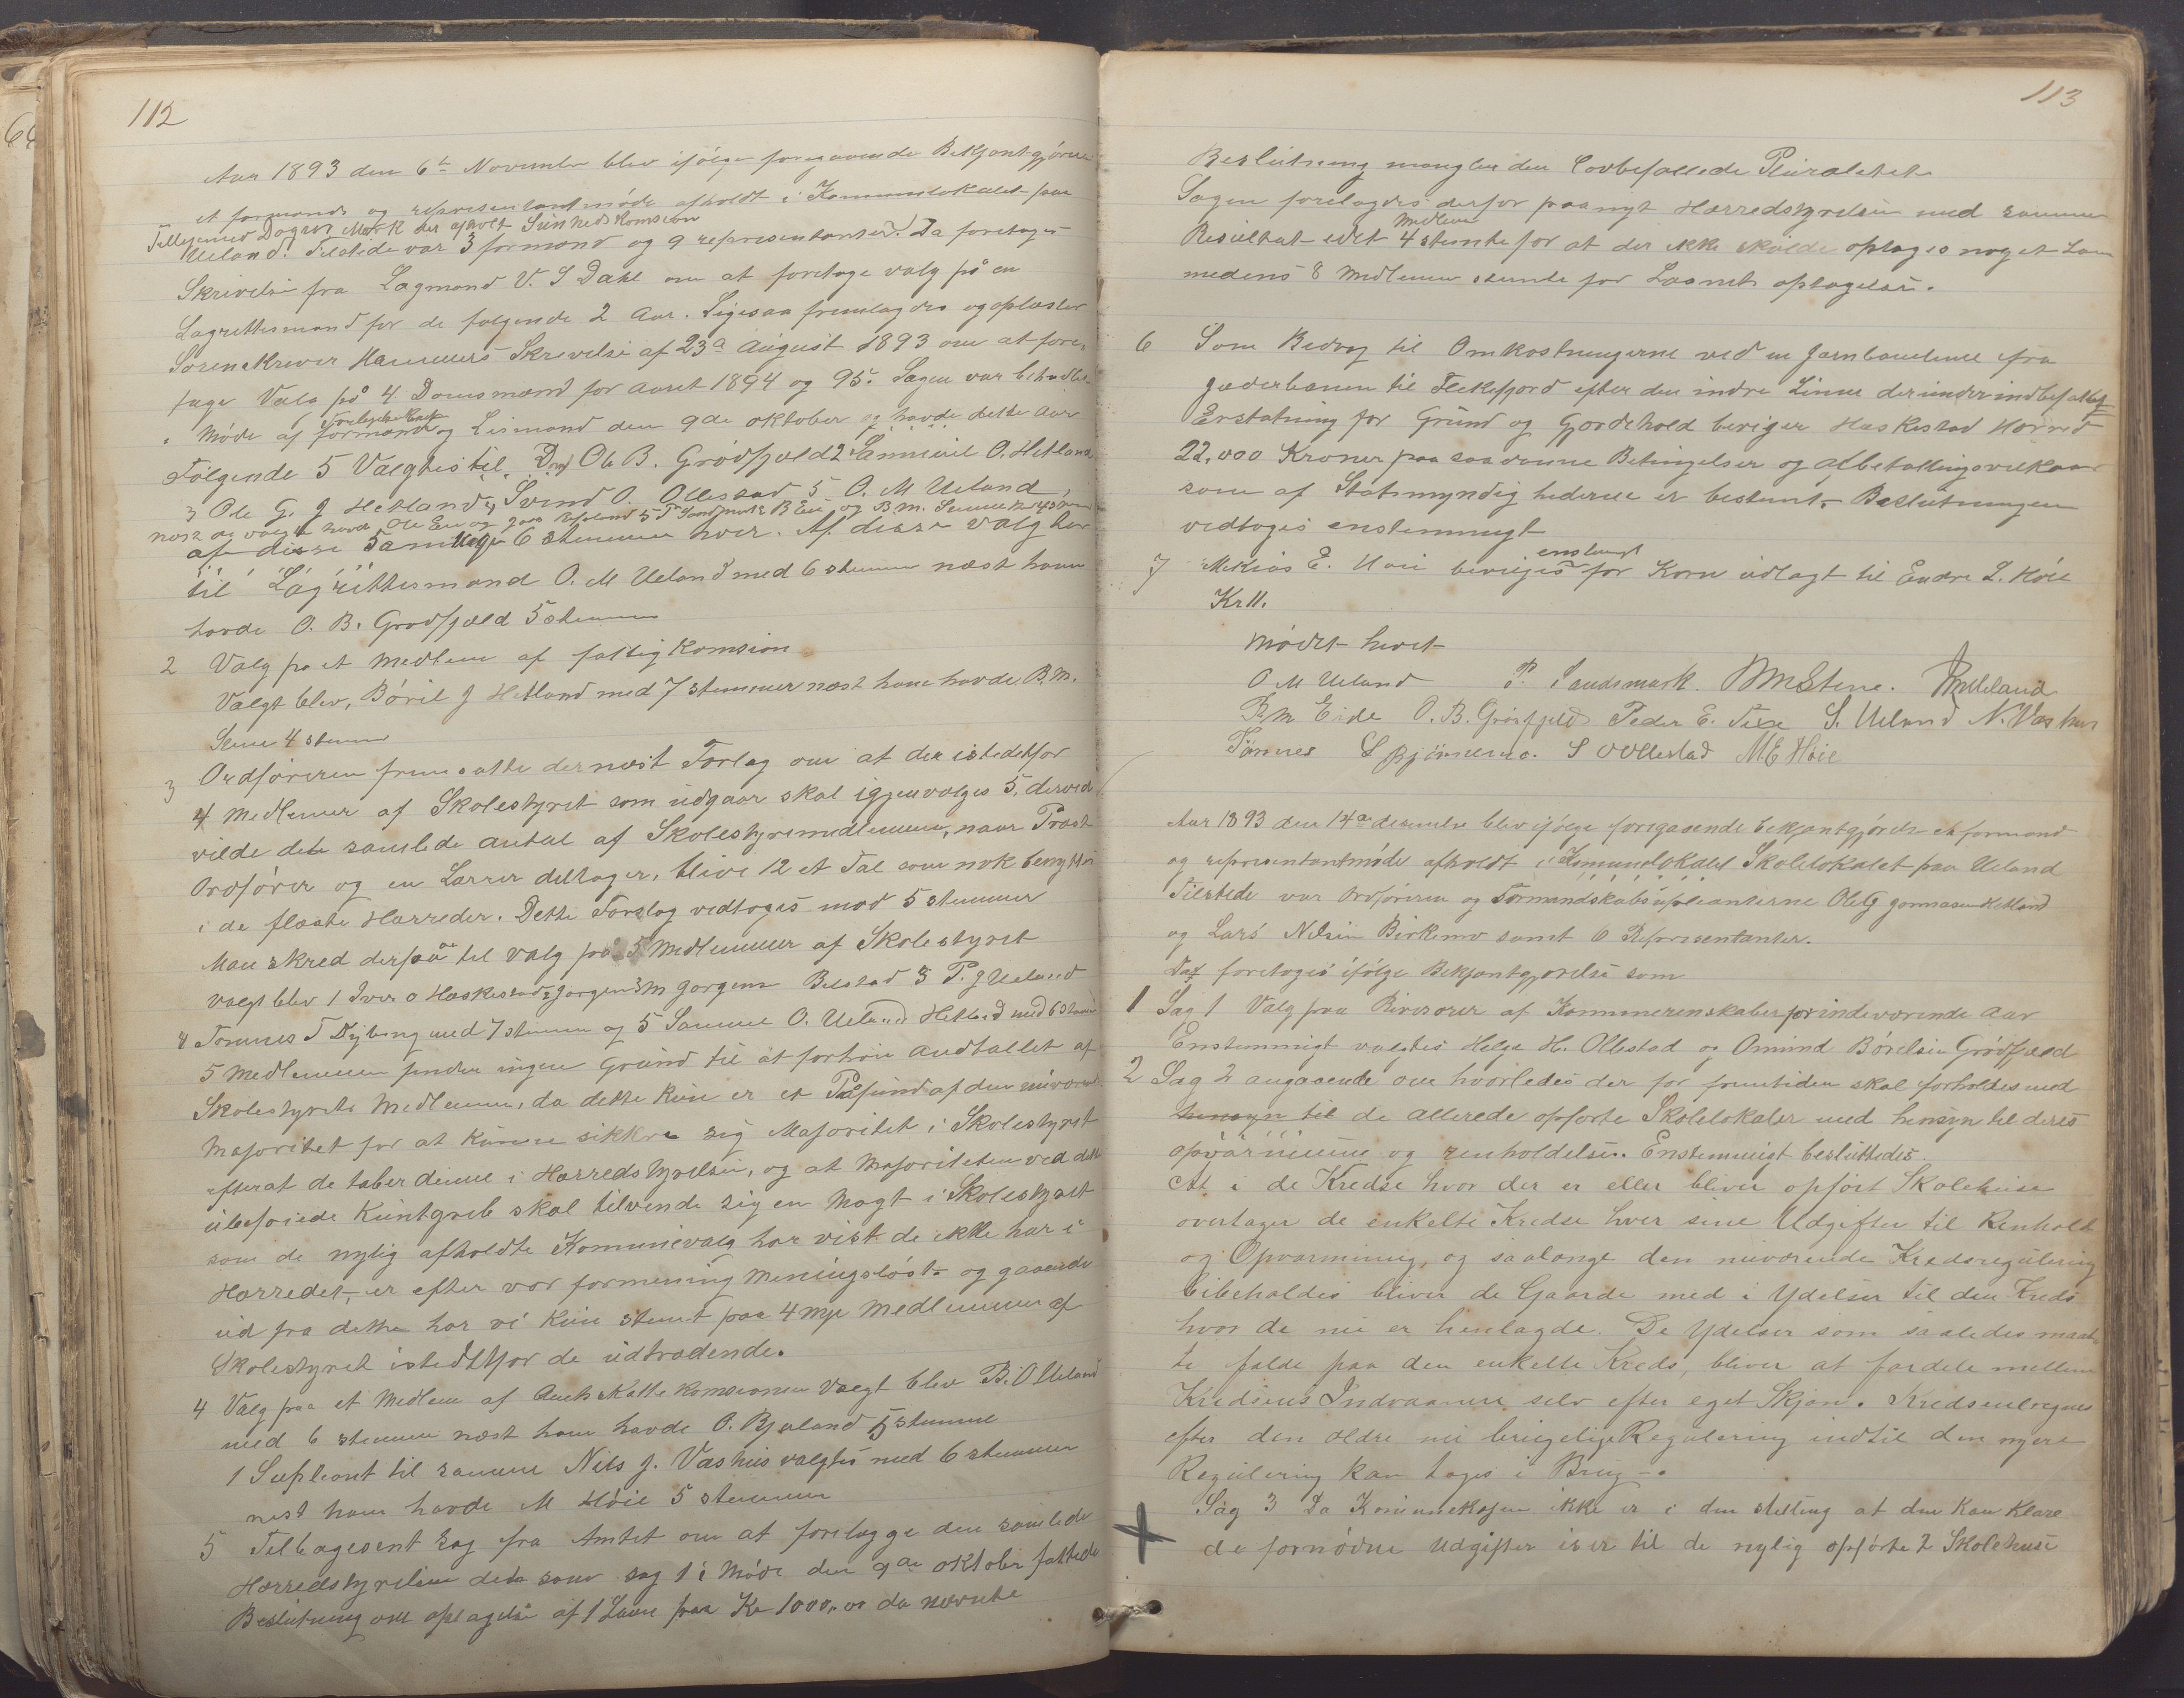 112
Aar 1893 den 6te November blev ifølge foregaaende Bekjentgjørelse
et formands og representantmøde afholdt i Kommunelokalet paa
Ueland. Tilstede var 3 formænd og 9 representanter. Da foretoges
Skrivelse fra Lagmand V. S Dahl om at foretage valg på en
Lagrettesmand for de følgende 2 Aar. Ligesaa fremlagdes og oplæstes
Sorenskriver Hammers Skrivelse af 23de August 1893 om at fore-
tage Valg på 4 Domsmænd for Aaret 1894 og 95. Sagen var behandlet
i Møde af formænd og Lismand den 9de oktober og havde dette Aar
Følgende 5 Valgtes til. Ole B. Grødfjeld 2 Samuel O. Hetland
3 Ole G. J Hetland 4 Svend O. Ollestad 5 O. M Ueland,
af disse 5 6 stemmer hver. Af disse valg
til Lagrettesmand O. M Ueland med 6 stemmer næst ham
havde O. B. Grødfjeld 5 stemmer
2 Valg på et Medlem af fattigKomsion
Valgt blev, Børil J Hetland med 7 stemmer næst ham havde B.M.
Stene 4 stemmer
3 Ordføreren fremsatte dernæst Forslag om at der istedetfor
4 Medlemer af Skolestyret som udgaar skal igjenvælges 5, derved
vilde det samlede antal af Skolestyremedlemmer, naar Præst
Ordfører og en Lærer deltager, blive 12 et Tal som nok benyttes
i de fleste Herreder. Dette Forslag vedtoges mod 5 stemmer
Man skred derpaa til valg på 5 Medlemmer af Skolestyret
valgt blev 1 Iver O Haskestad 2 Jørgen M Jørgens Bilstad 3 P. J Ueland
4 Tønnes T Dybing med 7 stemmer og 5 Samuel O. Ueland Hetland med 6 stemmer
5 Medlemmer finder ingen Grund til at forhøie Andtallet af
Skolestyrets Medlemmer, da dette kun er et Paafund af den nuværende
Majoritet for at kunne sikkre sig Majoritet i Skolestyret
efterat de taber denne i Herredstyrelsen, og at Majoriteten ved det
ubeføiede Kuntgreb skal tilvende sig en Magt i Skolestyret
som de nylig afholdte Komunevalg har vist de ikke har i
Herredet, er efter vor formening meningsløst og gaaende
ud fra dette har vi kun stemt paa 4 nye Medlemmer af
Skolestyret istedetfor de udtrædende.
4 Valg paa et Medlem af Amtskattekomsionen valgt blev B. O Ueland
med 6 stemmer næst ham havde O. Bjuland 5 stemme
1 Supleant til samme Nils J. Vashus valgtes med 6 stemmer
nest ham havde M Høie 5 stemmer
5 Tilbagesent Sag fra Amtet om at forelægge den samlede
Herredstyrelsen det som sag 1 i Møde den 9de oktober fattede
Beslutning om optagelse af 1 Laan paa Kr 1000,00 da nævnte
113
Beslutning mangler den Lovbefallede Pluralitet
Sagen forelagdes derfor paanyt Herredstyrelsen med samme
Medlemer
Resultat idet 4 stemte for at der ikke skulde optages noget Laan
medens 8 Medlemer stemte for Laanets optagelse.
6 Som Bidrag til Omkostningerne ved en Jernbanelinie fra
Jæderbanen til Flekkefjord efter den indre Linie derunder indbefattet
Erstatning for Grund og Gjærdehold beviger Haskestad Herred
22,000 Kroner paa saadanne Betingelser og afbetalingsvilkaar
som af Statsmyndighederne er bestemt. Beslutningen
vedtoges enstemmigt
enstemt
7 Mikias E. Høie beviljes for Korn udlagt til Endre L. Høie
Kr 11.
Mødet hevet
O M Ueland P. Sandsmark. BMStene.
P. M Eide O. B. Grøsfjeld Peder E. S. Ueland N. Vashus
Tønnes S Bjørnemo. S O Ollestad M E Høie
Aar 1893 den 14de desember blev ifølge foregaaende Bekjantgjørelse et formand
og representantmøde afholdt i Komunelokalet Skolelokalet paa Ueland
Tilstede var Ordføreren og Formandskabsupleanterne Ole G Gunnarsen Hetland
og Lars Nilsen Birkemo samt 6 Representanter.
Da foretoges ifølge Bekjantgjørelse som
1 Sag 1 Valg paa Revisorer af Kommunerenskaber for indeværende Aar
Enstemmigt valgtes Helge H. Ollestad og Omund Børelsen Grødfjeld
2 Sag 2 angaaende om hvorledes der for fremtiden skal forholdes med
hensyn til de allerede opførte Skolelokaler med hensyn til deres
opvarmning og renholdelse. Enstemmigt besluttedes.
At i de Kredse hvor der er eller bliver opført Skolehuse
overtager de enkelte Kredse hver sine Udgifter til Renhold
og Opvarmning, og saalænge den nuværende Kredsregulering
bibeholdes bliver de Gaarde med i Ydelser til den Kreds
hvor de nu er henlagde. De Ydelser som saaledes maat-
te falde paa den enkelte Kreds, bliver at fordele mellem
Kredsens Indvaanere selv efter eget Skjøn. Kredsene regnes
efter den ældre nu brugelige Regulering indtil den nyere
Regulering kan tages i Brug.
Sag 3 Da Komunekassen ikke er i den stilling at den kan klare
de fornødne Udgifter især til de nylig opførte 2 Skolehuse